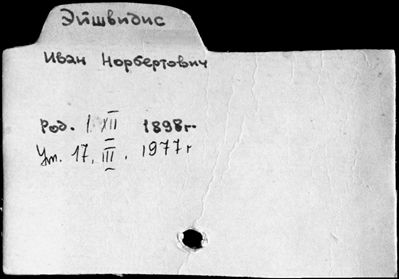 Эйшвидис
Иван Норбертович
Род. 1 XII 1898г.
Ум. 17. III. 1977г